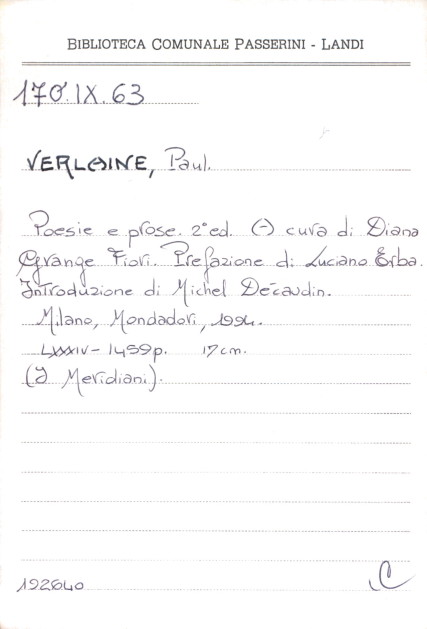 BIBLIOTECA COMUNALE PASSERINI - LANDI
170.IX.63
VERLAINE, Paul.
Poesie e prose. 2°ed. (-) cura di Diana
Grange Fiori. Prefazione di Luciano Erba.
Introduzione di Michel Décaudin.
Milano, Mondadori, 1994.
LXXXIV- 1459p. 17cm.
(I Meridiani).
192640
C